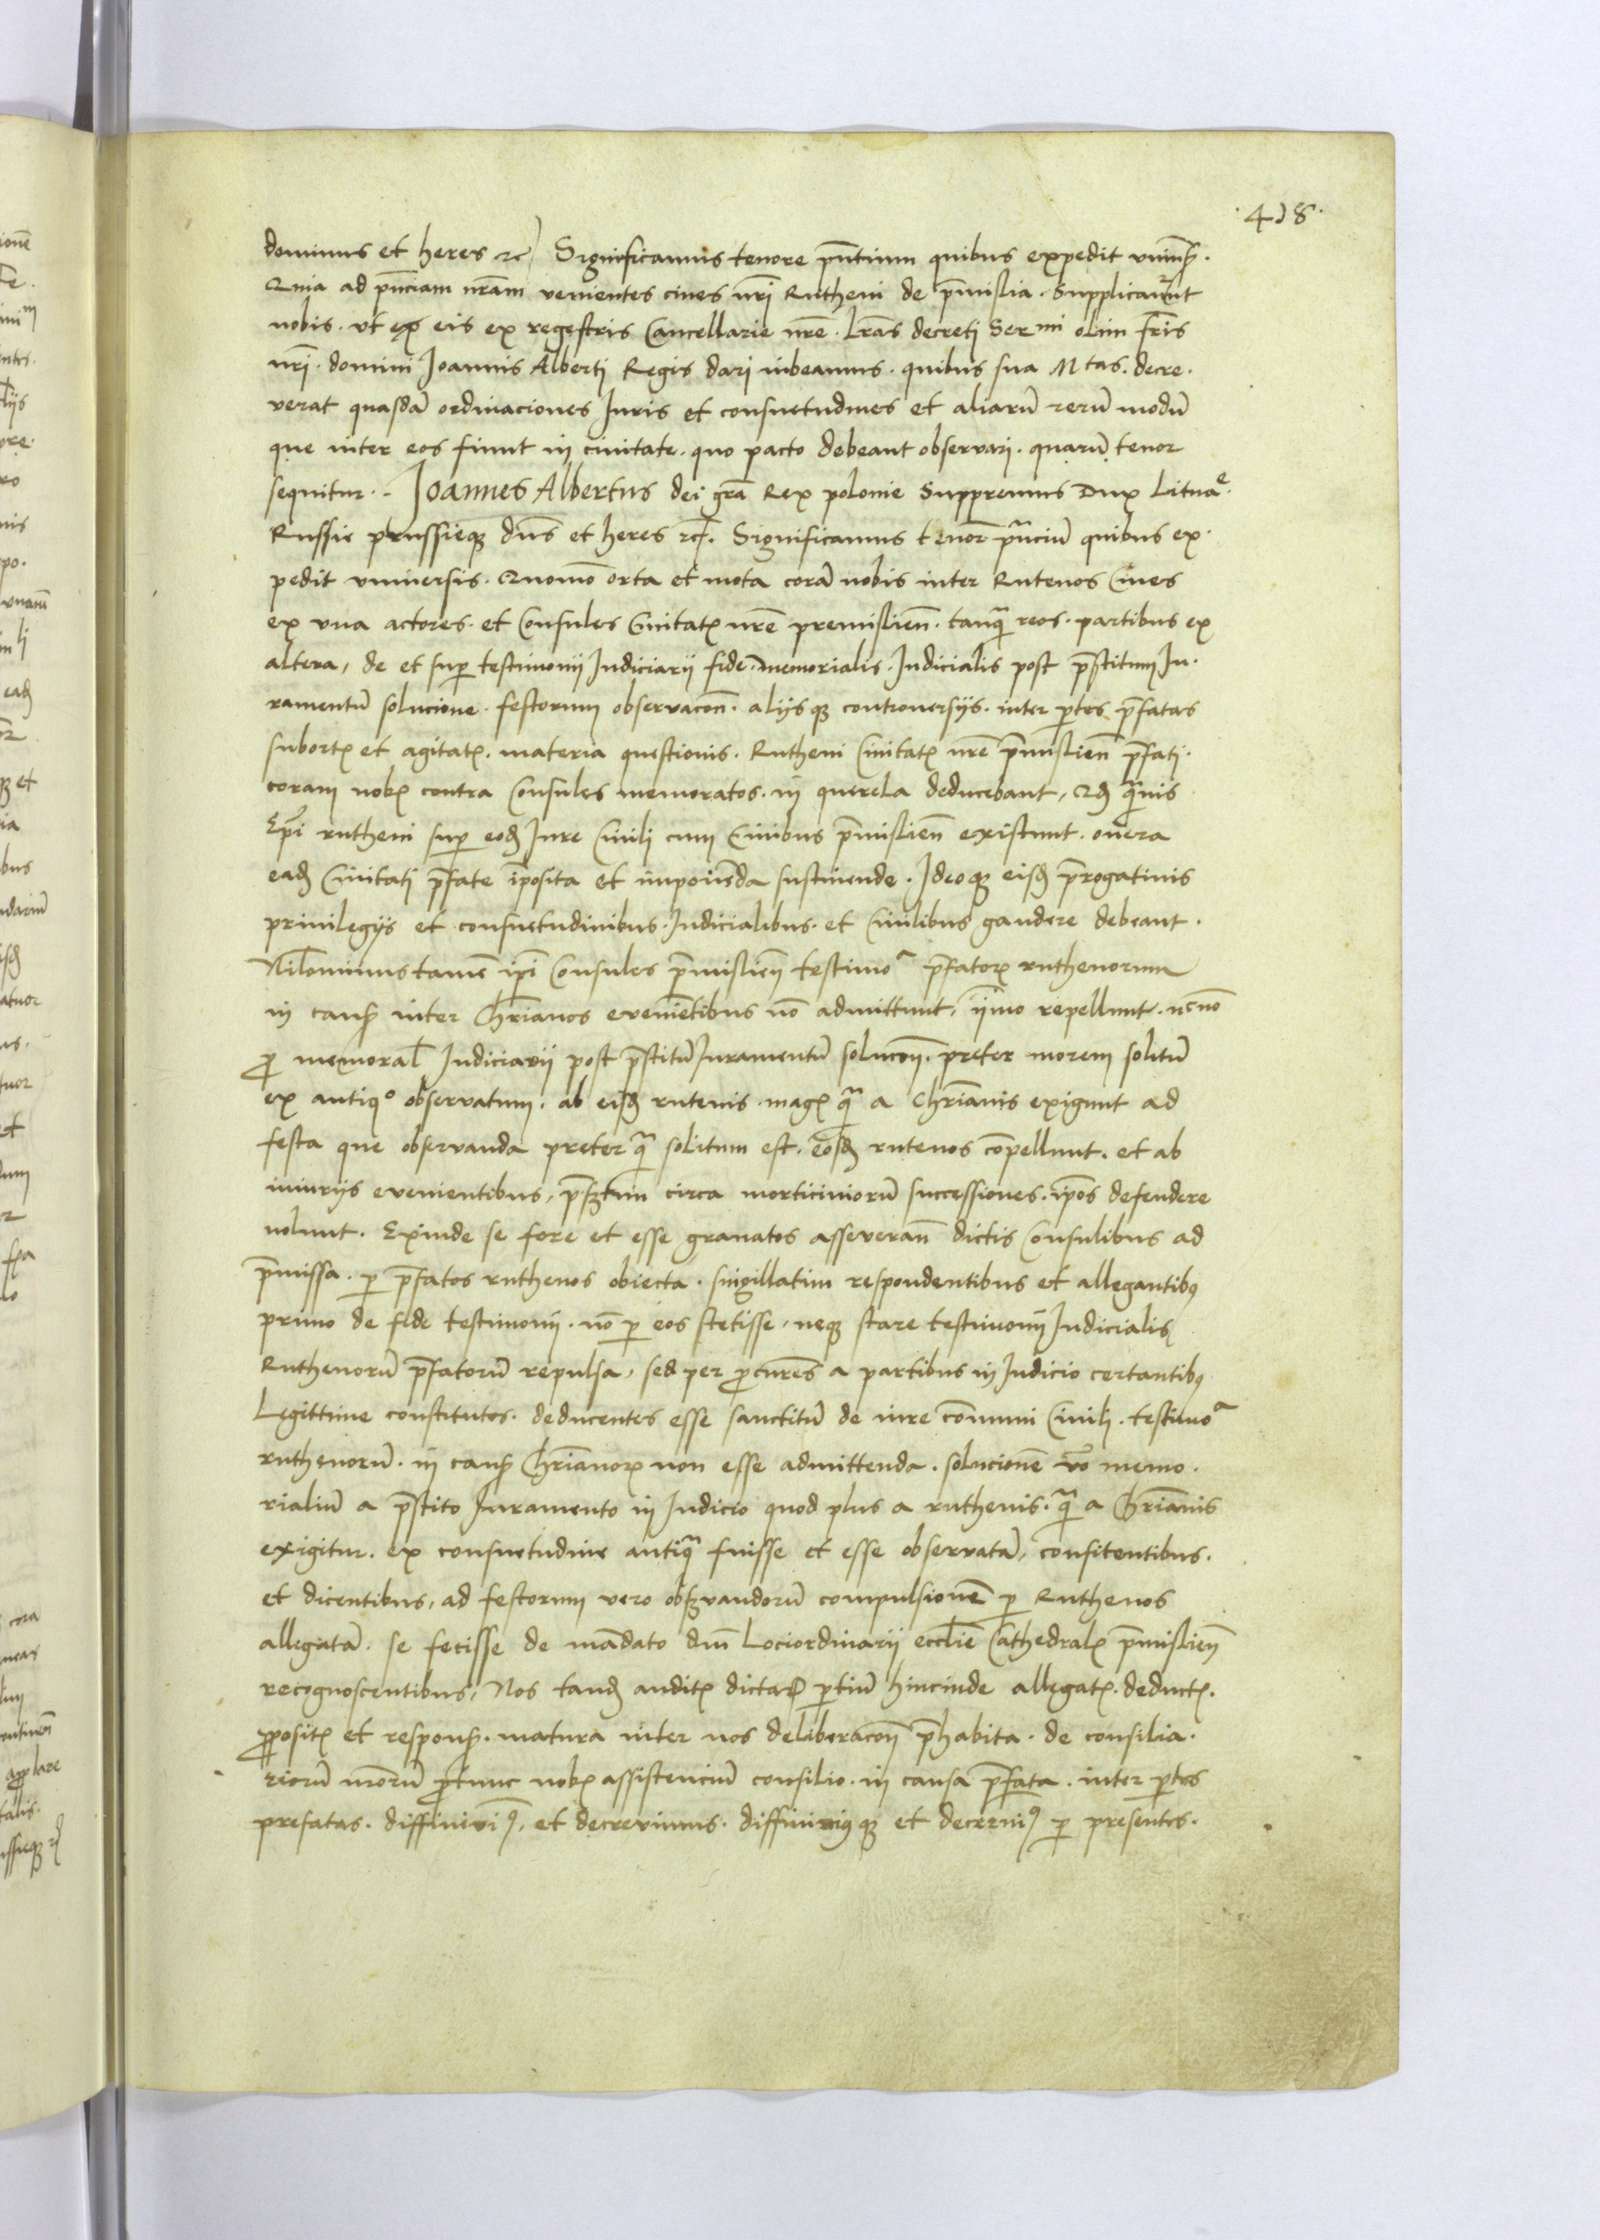 ·418·
dominus et heres ꝛc̃ Significamus tenore pñtium quibus expedit vniuers̃.
Quia ad pñciam nr̃am venientes ciues nr̃i Rutheni de p̃mislia. Supplicarũt
nobis. vt ex̃ eis ex regestris Cancellarie nr̃e. Lr̃as decreti Sermi olim fr̃is
nr̃i. domini Joannis Alberti Regis dari iubeamus. quibus sua Mtas. decre.
verat quasdã ordinaciones Iuris et consuetudines et aliarũ rerũ modũ
que inter eos fiunt in ciuitate. quo pacto debeant observari. quarũ tenor
sequitur. Joannes Albertus dei gr̃a Rex polonie Suppremus Dux Lituae.
Russie prussieqꝫ dñs et heres ꝛc̃. Significamus tenor̃ pñciũ quibus ex.
pedit vniuersis. Quomõ orta et mota corã nobis inter Rutenos Ciues
ex vna actores. et Consules Ciuitatꝭ nr̃e premislieñ. tanqꝫ reos. partibus ex
altera, de et suꝑ testimonii Iudiciarii fide. memorialis. Iudicialis post p̃stitum Iu.
ramentũ solucione. festorum observacõñ. aliisqꝫ controversiis. inter ꝑtes p̃fatas
subortꝭ et agitatꝭ. materia questionis. Rutheni Ciuitatꝭ nr̃e p̃mislieñ p̃fati.
coram nobꝭ contra Consules memoratos. in querela deducebant, Qđ qũis
Ip̃i rutheni suꝑ eođ Iure Ciuili cum Ciuibus p̃mislieñ existunt. onera
eađ Ciuitati p̃fate ĩposita et imponẽda sustinende. Ideoqꝫ eisđ p̃rogatiuis
priuilegiis et consuetudinibus. Iudicialibus. et Ciuilibus gaudere debeant.
Nil̃ominus tamẽ ip̃i Consules p̃mislieñ testimoᵃ p̃fatorꝝ ruthenorum
in caus̃ inter Chr̃ianos eveniẽtibus nõ admittunt, ỹmo repellunt. necnõ
ꝓ memoral̃ Iudiciarii post p̃stitũ Iuramentũ solucõñ. preter morem solitũ
ex antiqº observatum. ab eisđ rutenis. magꝭ qᵃ̃ a Chr̃ianis exigunt ad
festa que observanda preter qᵃ̃ solitum est. eosđ rutenos cõpellunt. et ab
iniuriis evenientibus, p̃sẽtim circa morticiniorũ successiones. ip̃os defendere
nolunt. Exinde se fore et esse grauatos asseverañ dictis Consulibus ad
p̃missa. ꝑ p̃fatos ruthenos obiecta. singillatim respondentibus et allegantibꝰ
primo de fide testimonii. nõ ꝑ eos stetisse, neqꝫ stare testimonii Iudicialis
Ruthenorũ p̃fatorũ repulsa, sed per ꝓcur̃es a partibus in Iudicio certantibꝰ
Legittime constitutos. deducentes esse sanctitũ de iure cõmuni Ciuili. testimoᵃ
ruthenorũ. in caus̃ Chr̃ianorꝝ non esse admittenda. solucionẽ vo᷑ memo.
rialiũ a p̃stito Iuramento in Iudicio quod plus a ruthenis. qᵃ̃ a Chr̃ianis
exigitur. ex consuetudine antiqᵃ fuisse et esse observatã, confitentibus.
et dicentibus, ad festorum vero obs̃vandorũ compulsionẽ ꝑ Ruthenos
allegatã. se fecisse de mãdato dñi Lociordinarii eccl̃ie Cathedralꝭ p̃mislieñ
recognoscentibus, Nos tanđ auditꝭ dictaꝝ ꝑtiũ hincinde allegatꝭ. deductꝭ.
ꝓpositꝭ et respons̃. matura inter nos deliberacõñ p̃habita. de consilia.
riorũ nr̃orũ ꝓtunc nobꝭ assistenciũ consilio. in causa p̃fata. inter ꝑtes
prefatas. diffiniviꝰ, et decrevimus. diffinimꝰqꝫ et decerniꝰ ꝑ presentes.